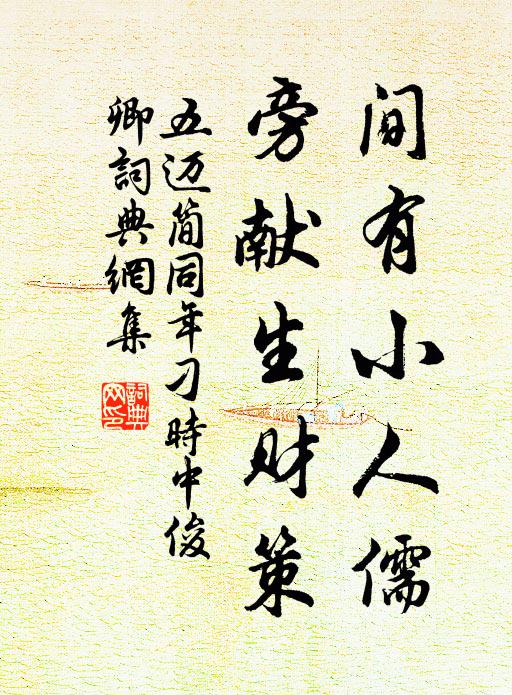 间有小人儒
旁献生财策
五迈简同年刁時中俊
卿詞典網集
詞典
网印